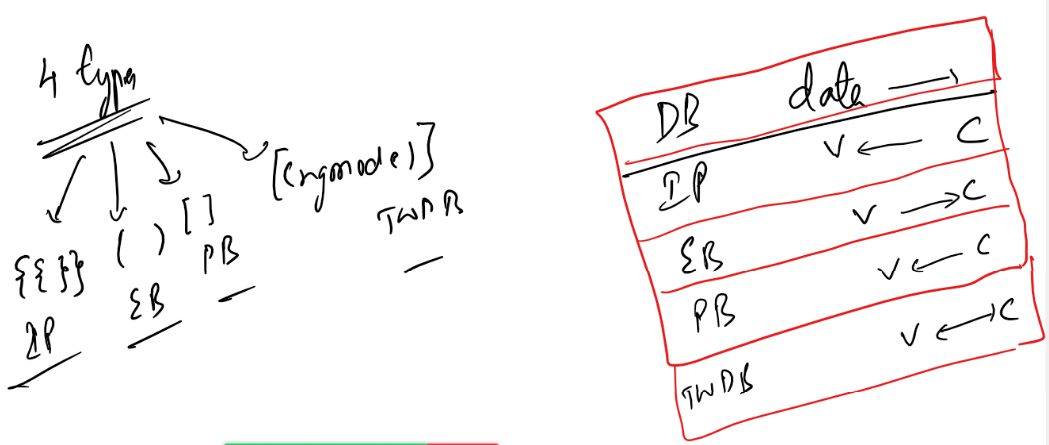 4 types
{{ }}
IP
( )
EB
[ ]
PB
[(ngmodel)]
TWDB
DB data →
IP V ← C
EB V → C
PB V ← C
TWDB V ↔ C